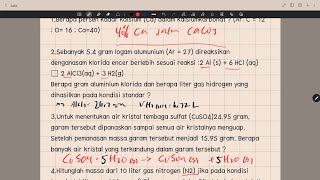 1.Berapa persen kadar kalsium (Ca) dalam kalsiumkarbonat ? (Ar: C = 12
: O= 16 : Ca=40) 40% Ca dalam CaCO3
2.Sebanyak 5.4 gram logam alumunium (Ar = 27) direaksikan
dengan asam klorida encer berlebih sesuai reaksi :2 Al (s) + 6 HCl (aq)
2 AlCl3(aq) + 3 H2(g)
Berapa gram alumunium klorida dan berapa liter gas hidrogen yang
dihasilkan pada kondisi standar ?
m AlCl3= 26.7 gram V H2 = 6.72 L
3.Untuk menentukan air kristal tembaga sulfat (CuSO4)24.95 gram,
garam tersebut dipanaskan sampai semua air kristalnya menguap.
Setelah pemanasan massa garam tersebut menjadi 15.95 gram. Berapa
banyak air kristal yang terkandung dalam garam tersebut?
CuSO4 . 5 H2O (s) -> CuSO4 (s) + 5 H2O (g)
4.Hitunglah massa dari 10 liter gas nitrogen (N2) jika pada kondisi